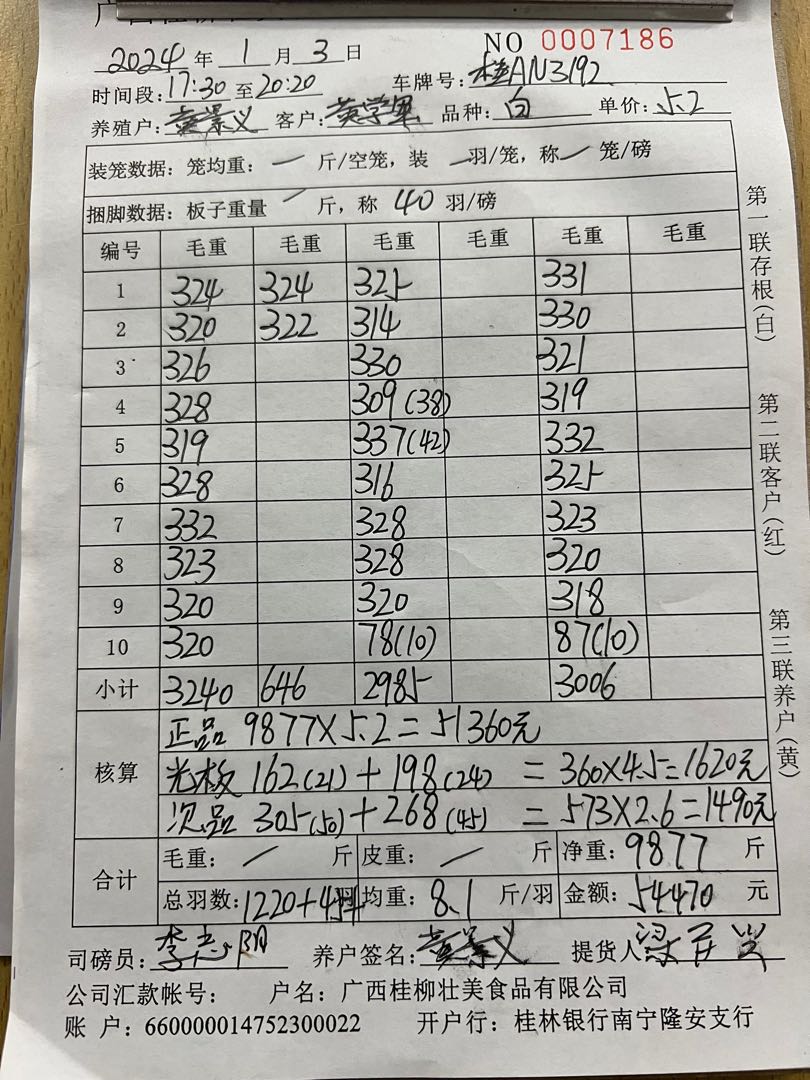 2024年1月3日 NO 0007186
时间段:17:30至20:20 车牌号:桂AN3192
养殖户:黄景义 客户:黄学果 品种:白 单价:5.2
装笼数据:笼均重: — 斤/空笼,装 — 羽/笼,称 — 笼/磅
捆脚数据:板子重量 — 斤,称 40 羽/磅
编号 毛重 毛重 毛重 毛重 毛重 毛重
1 324 324 325 331
2 320 322 314 330
3 326 330 321
4 328 309(38) 319
5 319 337(42) 332
6 328 316 325
7 332 328 323
8 323 328 320
9 320 320 318
10 320 78(10) 87(10)
小计 3240 646 2985 3006
核算
正品 9877×5.2=51360元
光板 162(21)+198(24) =360×4.5=1620元
次品 305(50)+268(45) =573×2.6=1490元
合计
毛重: — 斤 皮重: — 斤 净重:9877 斤
总羽数:1220+ 均重:8.1 斤/羽 金额:54470 元
司磅员:李志阳 养户签名:黄景义 提货人
公司汇款帐号: 户名:广西桂柳壮美食品有限公司
账 户:660000014752300022 开户行:桂林银行南宁隆安支行
第一联存根(白)
第二联客户(红)
第三联养户(黄)